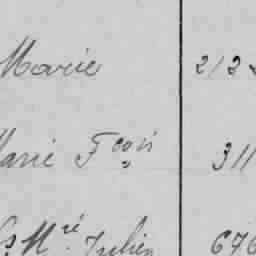 Marie 212
Marie Fcois 311
Mré Julien 676